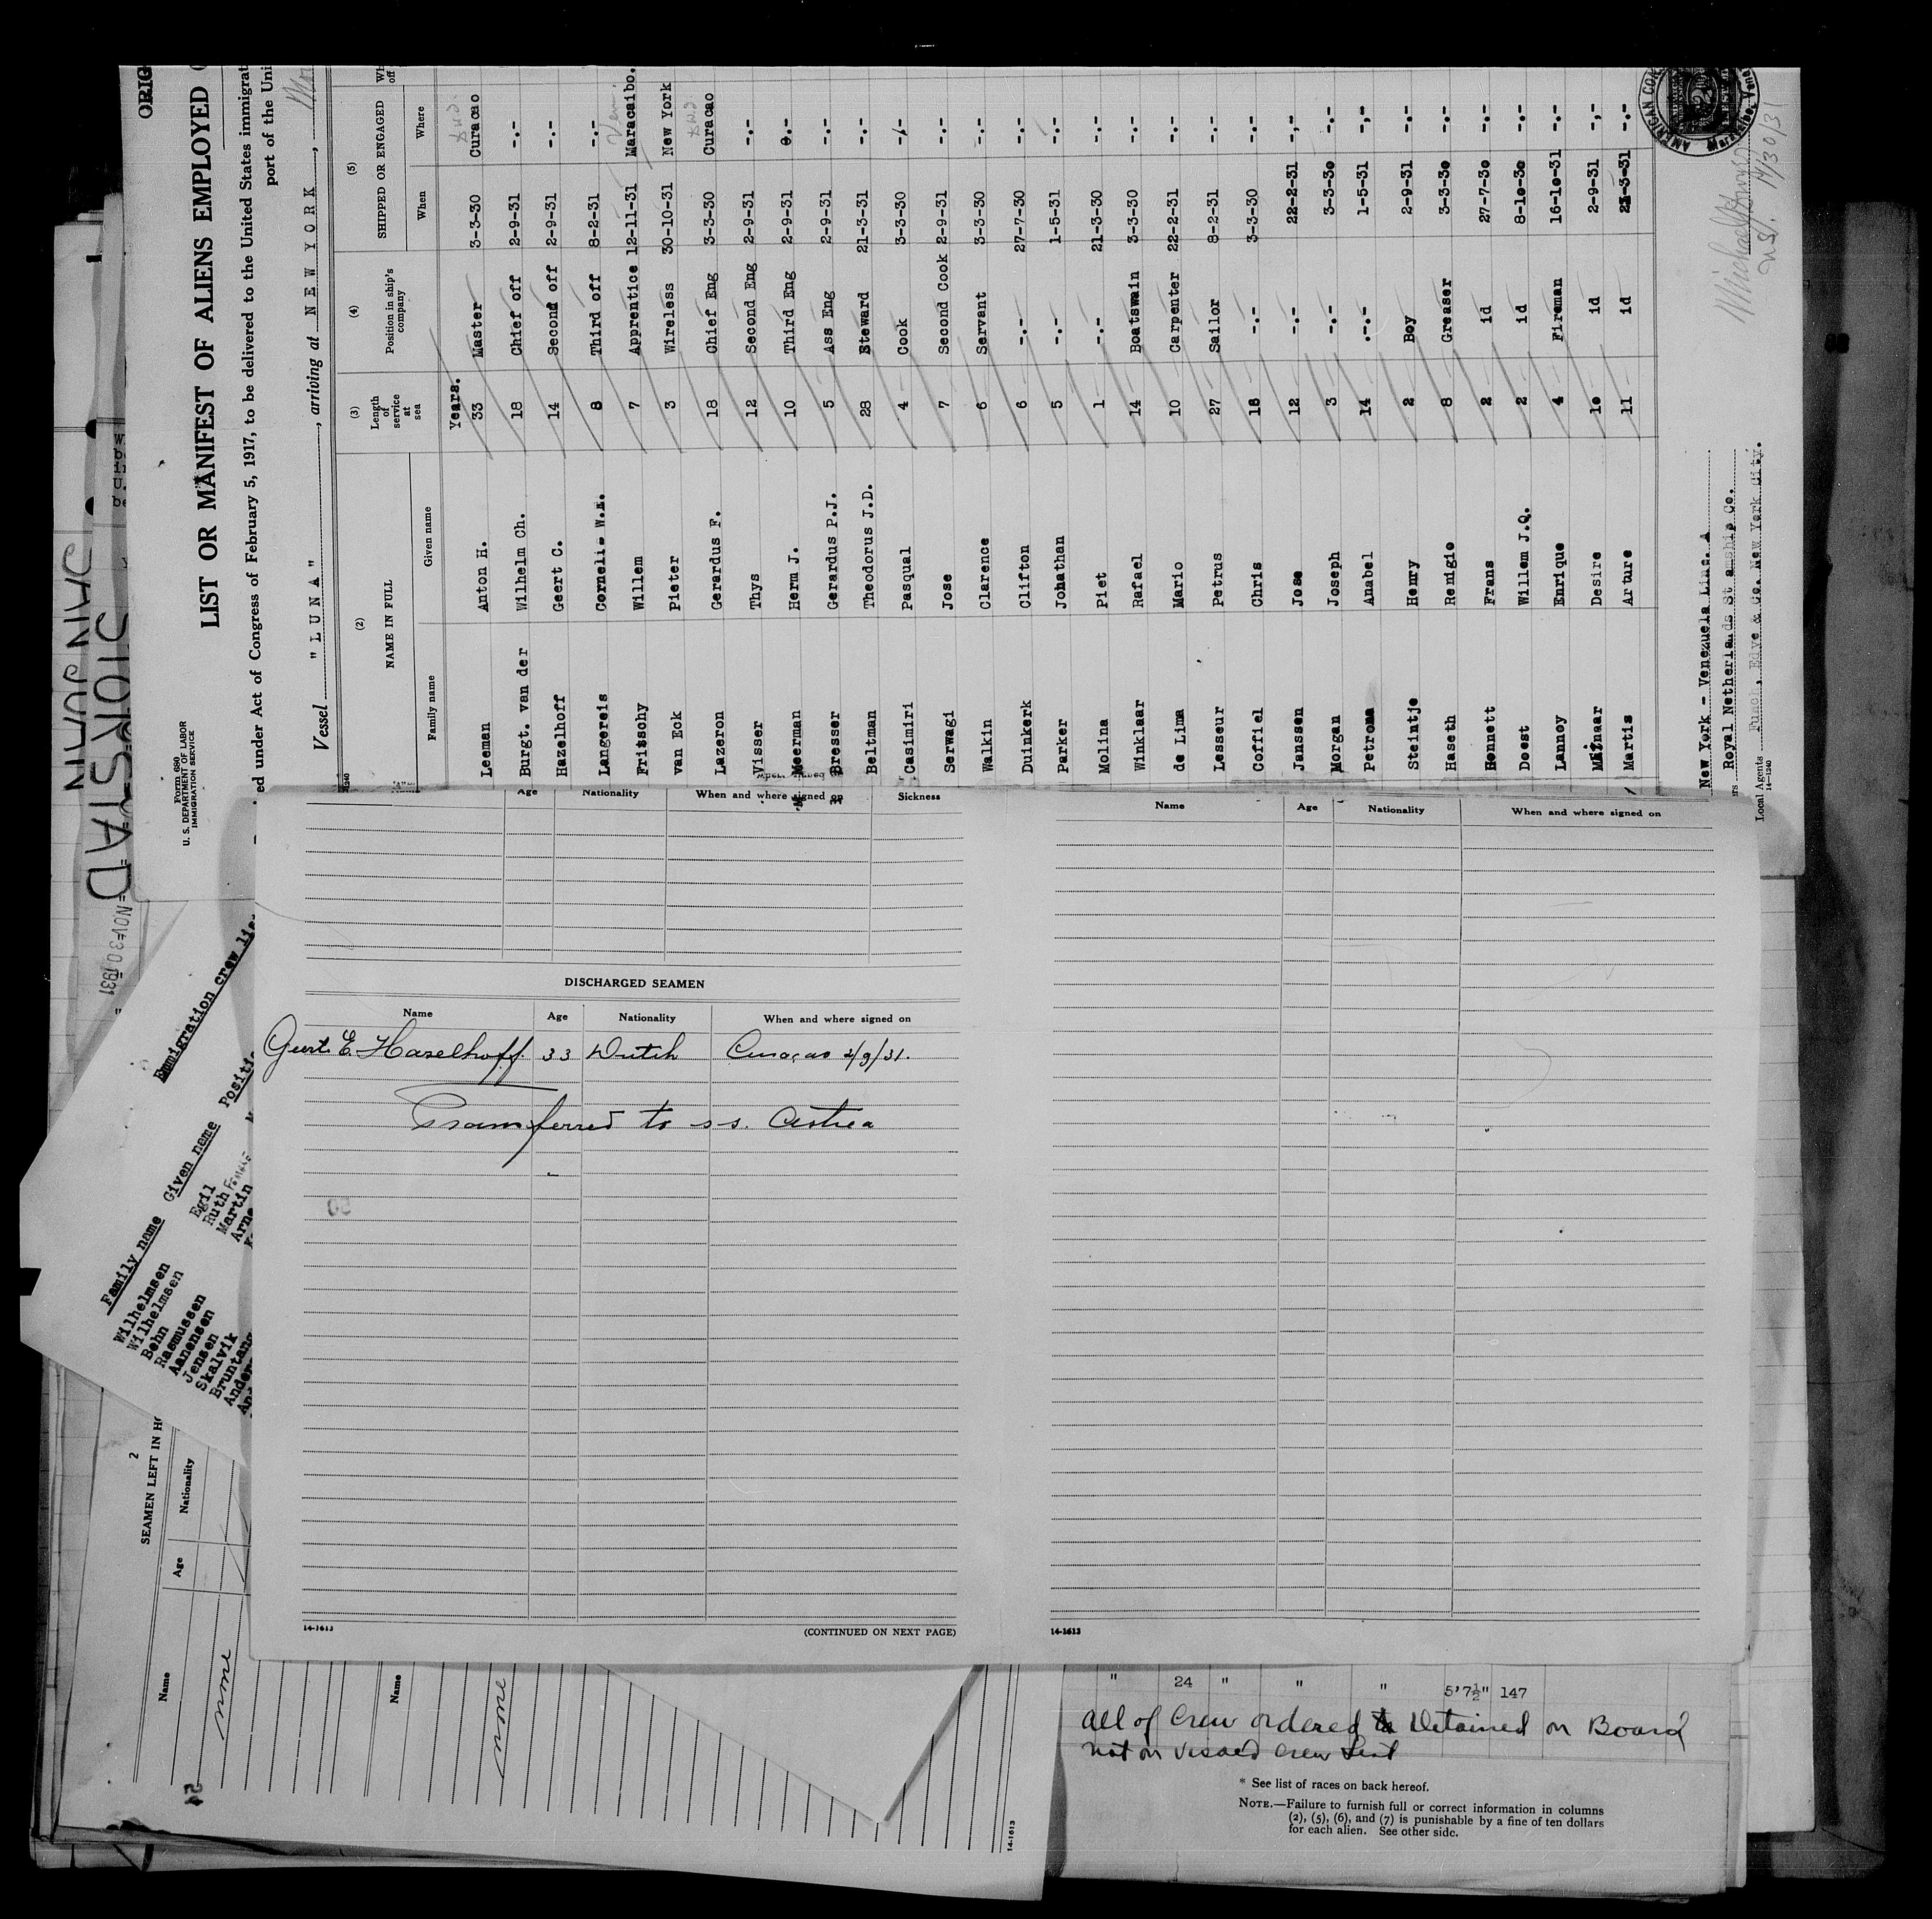 ORIG
LIST OR MANIFEST OF ALIENS EMPLOYED
Form 680
U. S. DEPARTMENT OF LABOR
IMMIGRATION SERVICE
ed under Act of Congress of February 5, 1917, to be delivered to the United States immigrat
port of the Uni
Vessel "LUNA", arriving at NEW YORK,
(2) (3) (4) (5)
NAME IN FULL Length of service at sea Position in ship's company SHIPPED OR ENGAGED
Family name Given name When Where
Years.
Leeman Anton H. 33 Master 3-3-30 Curacao
Burgt. van der Wilhelm Ch. 18 Chief off 2-9-31 -.-
Hazelhoff Geert C. 14 Second off 2-9-31 -.-
Langereis Cornelis W.M. 8 Third off 8-2-31 -.-
Fritschy Willem 7 Apprentice 12-11-31 Maracaibo.
van Eck Pieter 3 Wireless 30-10-31 New York
Lazeron Gerardus F. 18 Chief Eng 3-3-30 Curacao
Visser Thys 12 Second Eng 2-9-31 -.-
Meerman Herm J. 10 Third Eng 2-9-31 -.-
Bresser Gerardus P.J. 5 Ass Eng 2-9-31 -.-
Beltman Theodorus J.D. 28 Steward 21-3-31 -.-
Casimiri Pasqual 4 Cook 3-3-30 -.-
Serwagi Jose 7 Second Cook 2-9-31 -.-
Walkin Clarence 6 Servant 3-3-30 -.-
Duinkerk Clifton 6 -.- 27-7-30 -.-
Parker Johathan 5 -.- 1-5-31 -.-
Molina Piet 1 -.- 21-3-30 -.-
Winklaar Rafael 14 Boatswain 3-3-30 -.-
de Lima Mario 10 Carpenter 22-2-31 -.-
Lesseur Petrus 27 Sailor 8-2-31 -.-
Coffiel Chris 18 -.- 3-3-30 -.-
Janssen Jose 12 -.- 22-2-31 -,-
Morgan Joseph 3 -.- 3-3-30 -.-
Petrona Anabel 14 -.- 1-5-31 -,-
Steintje Henry 2 Boy 2-9-31 -.-
Haseth Remigio 8 Greaser 3-3-30 -.-
Hennett Frans 2 id 27-7-30 -.-
Doest Willem J.Q. 2 id 8-10-30 -.-
Lannoy Enrique 4 Fireman 16-10-31 -.-
Maznaar Desire 10 id 2-9-31 -,-
Martis Arture 11 id 21-3-31 -.-
New York - Venezuela Line. A
Royal Netherlands Steamship Co.
Local Agents Funch, Edye & Co. New York City.
14-1240
AMERICAN CON
11/30/31
STORSTAD
=NOV 30 1931
Emmigration crew lis
Family name Given name Positi
Wilhelmsen Egil
Wilhelmsen Ruth
Behn Martin
Rasmussen Arne
Aanensen
Jensen
Skalvik
Bruntang
Ander
Age Nationality When and where signed on Sickness
DISCHARGED SEAMEN
Name Age Nationality When and where signed on
Geert E. Hazelhoff. 33 Dutch Curaçao 2/9/31.
Transferred to s s. Astrea
14-1613
(CONTINUED ON NEXT PAGE)
Name Age Nationality When and where signed on
14-1613
2
SEAMEN LEFT IN HO
Name Age Nationality
none
Name
none
14-1613
" 24 " " " 5'7½" 147
all of Crew ordered Detained on Board
not on visaed crew List
* See list of races on back hereof.
NOTE.—Failure to furnish full or correct information in columns
(2), (5), (6), and (7) is punishable by a fine of ten dollars
for each alien. See other side.